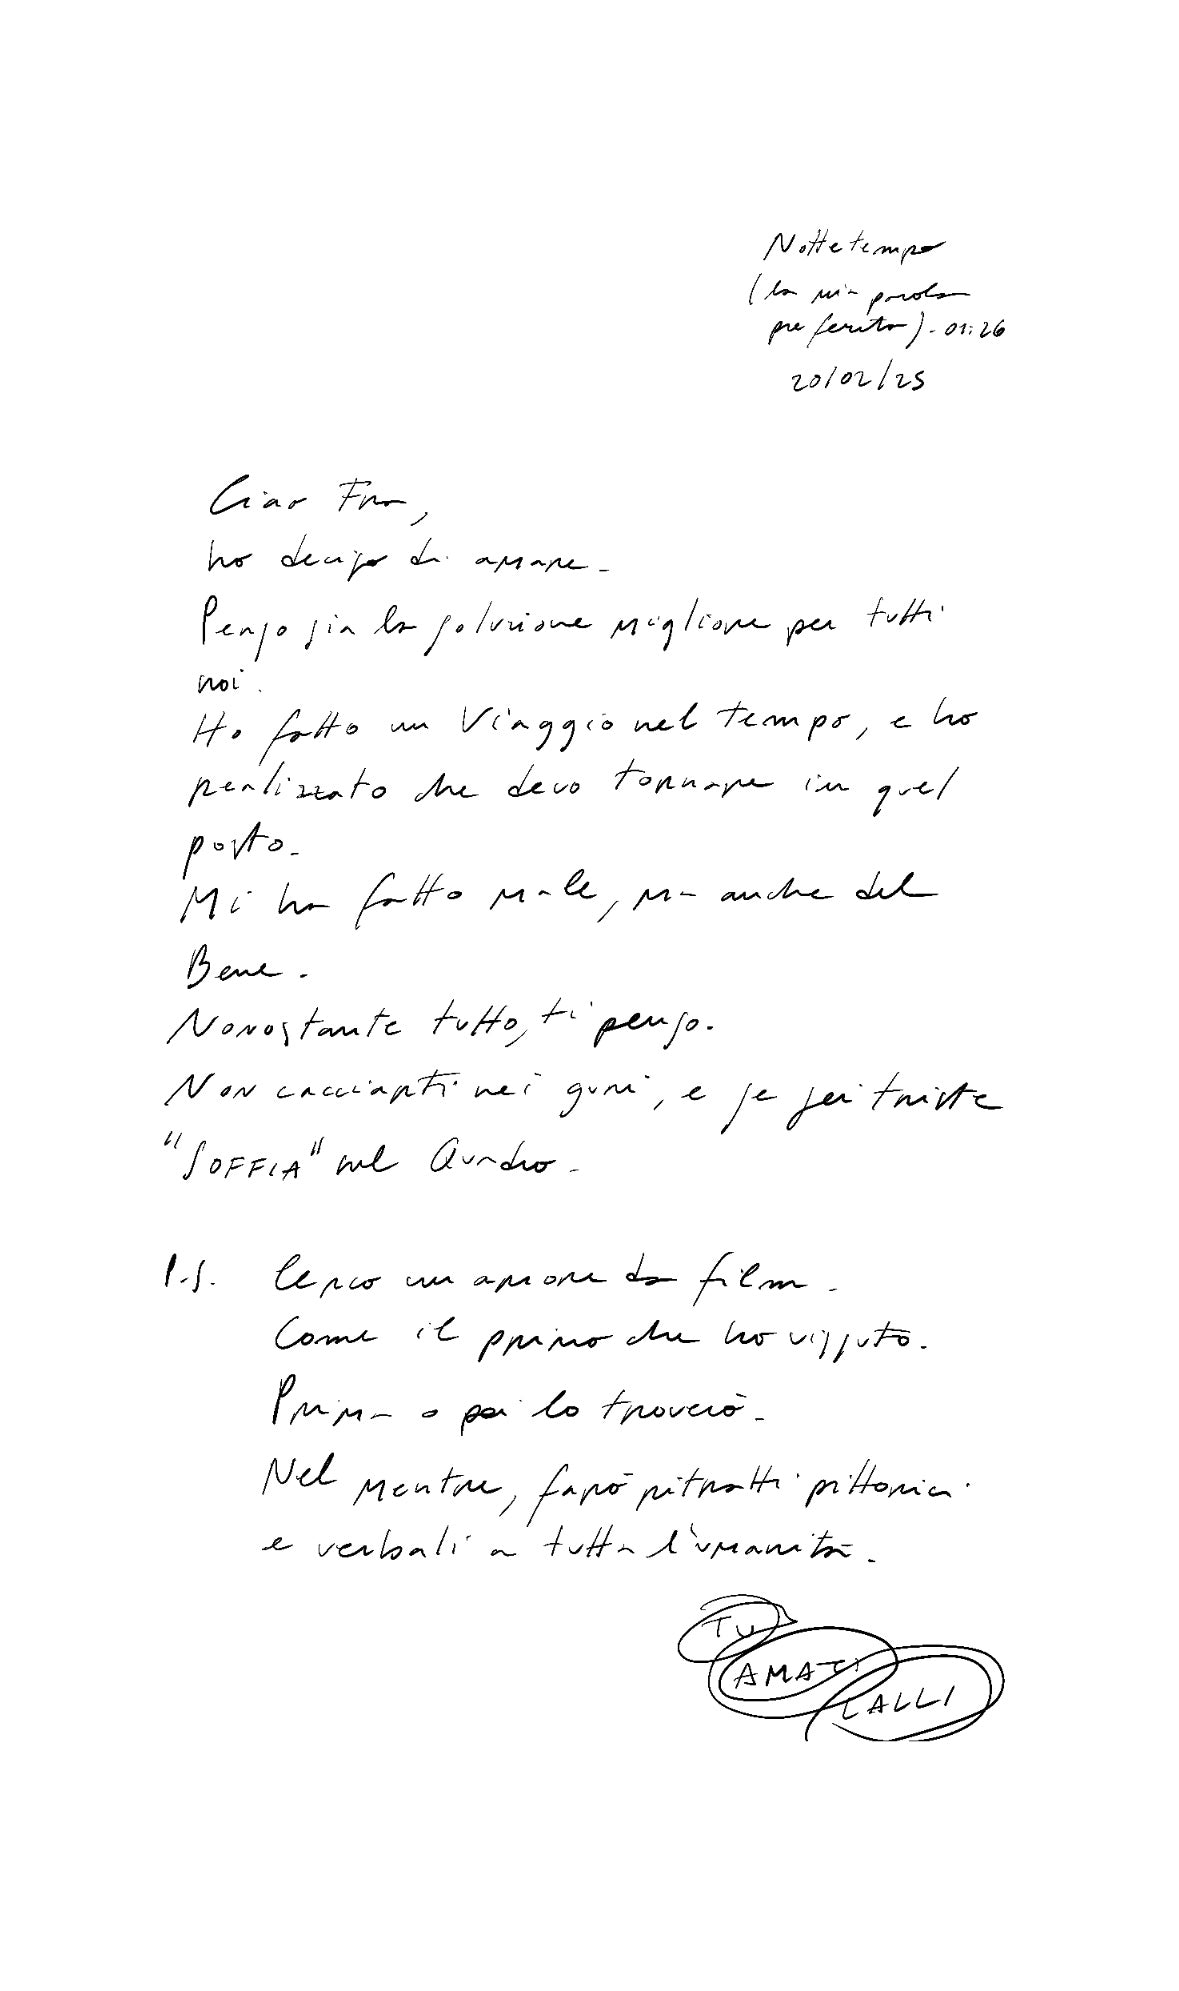 Nottetempo
(la mia parola
preferita). 01:26
20/02/25
Ciao Fra,
ho deciso di amare.
Penso sia la soluzione migliore per tutti
noi.
Ho fatto un Viaggio nel tempo, e ho
realizzato che devo tornare in quel
posto.
Mi ha fatto male, ma anche del
Bene.
Nonostante tutto, ti penso.
Non cacciarti nei guai, e se sei triste
"SOFFIA" sul Quadro.
P.S. Cerco un amore da film.
Come il primo che ho vissuto.
Prima o poi lo troverò.
Nel mentre, farò ritratti pittorici
e verbali a tutta l'umanità.
TU
AMATI
LALLI